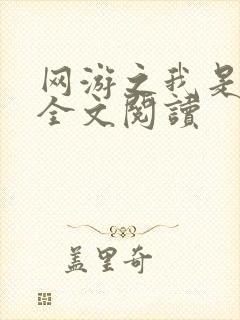 网游之我是
全文阅读
盖里奇